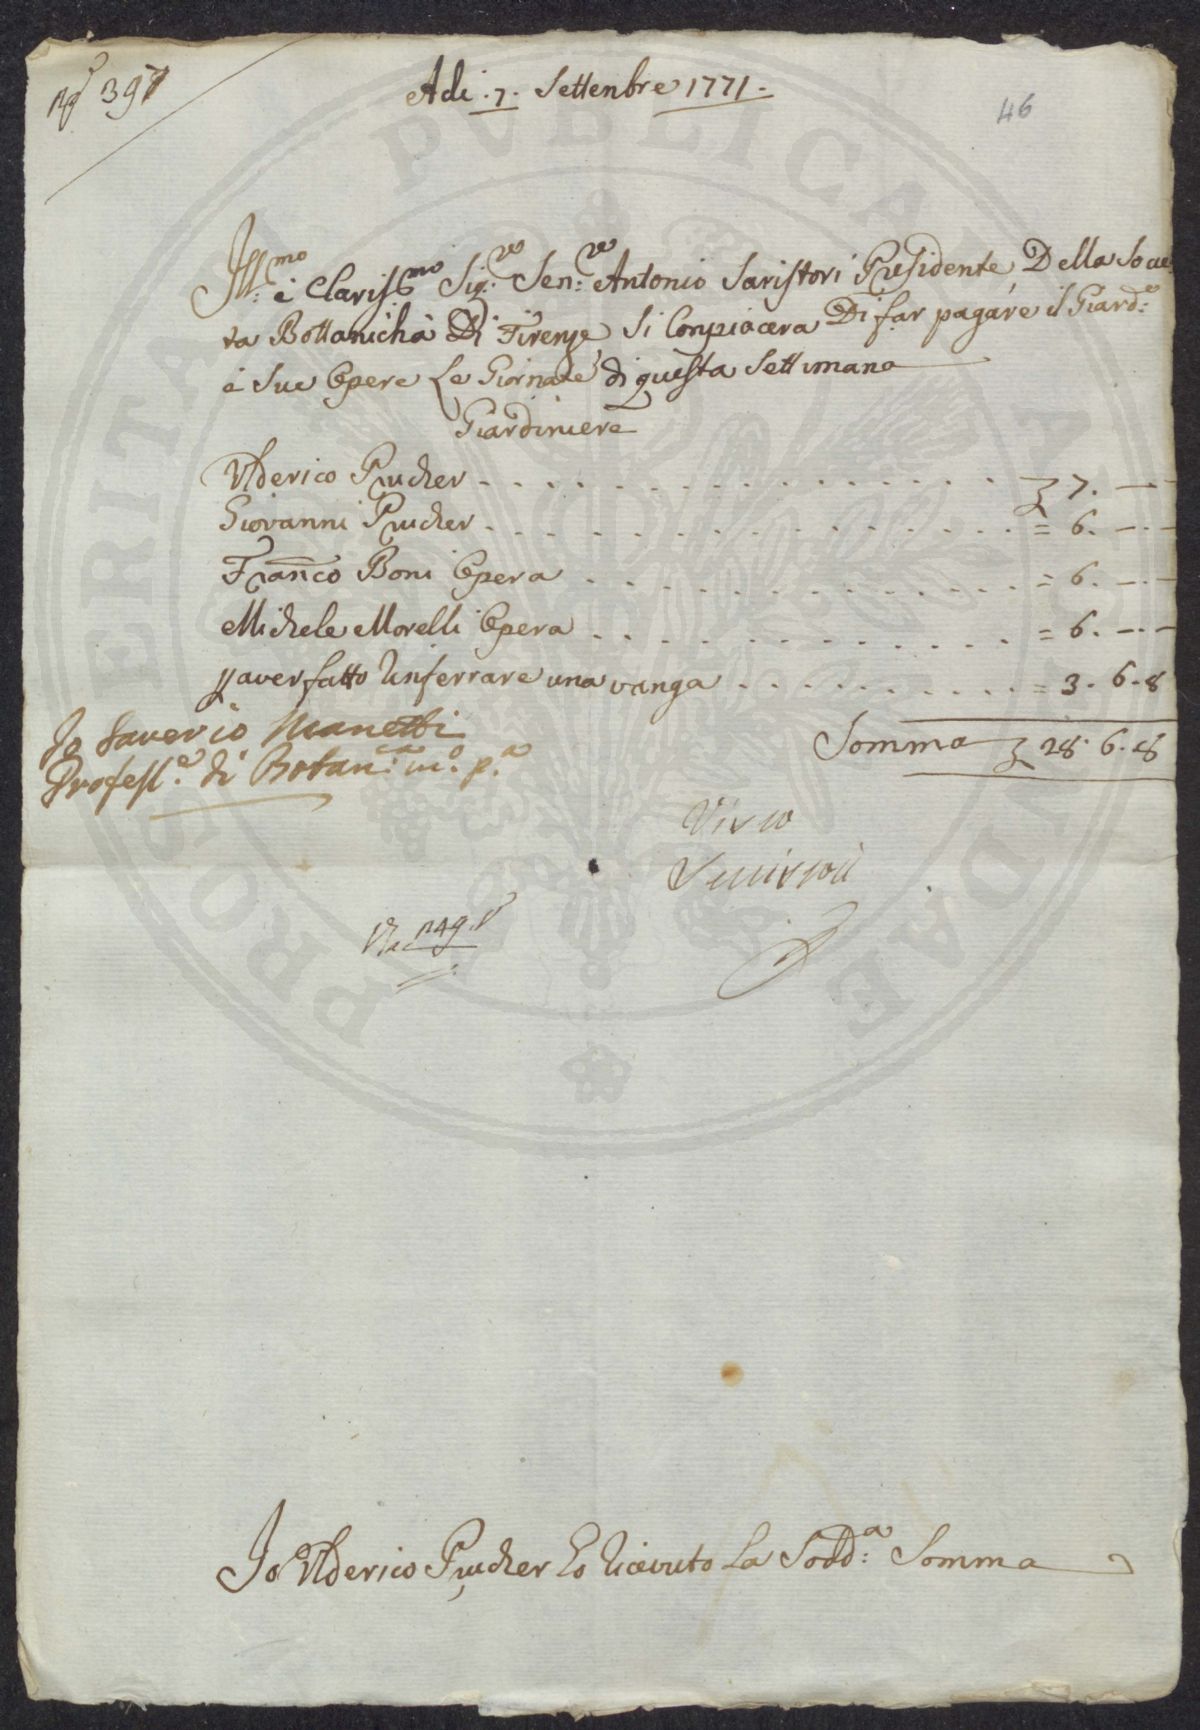 pg.º 397
Adi .7. Settenbre 1771.
46
Ill:mo è Clariss:mo Sig:re Sen:re Antonio Saristori Presidente Della Socie
ta Bottanicha Di Firenze Si Conpiacera Di far pagare il Giard:e
è Sue Opere Le Giornate di questa Settimana
Giardiniere
Vlderico Prucher - - - 7. —
Giovanni Prucher - - - = 6. —.—
Franco Boni Opera - - - = 6. —.—
Michele Morelli Opera - - - = 6. —.—
p aver fatto Rinferrare una vanga - - - = 3. 6. 8
Somma 28. 6. 8
Io Saverio Manetti
Profess.e di Botan.ca m.o p.a
Visto
Serristori
Io Vlderico Prucher ho ricevuto La Sodd:a Somma
PUBLICAE
PROSPERITATI AUGENDAE